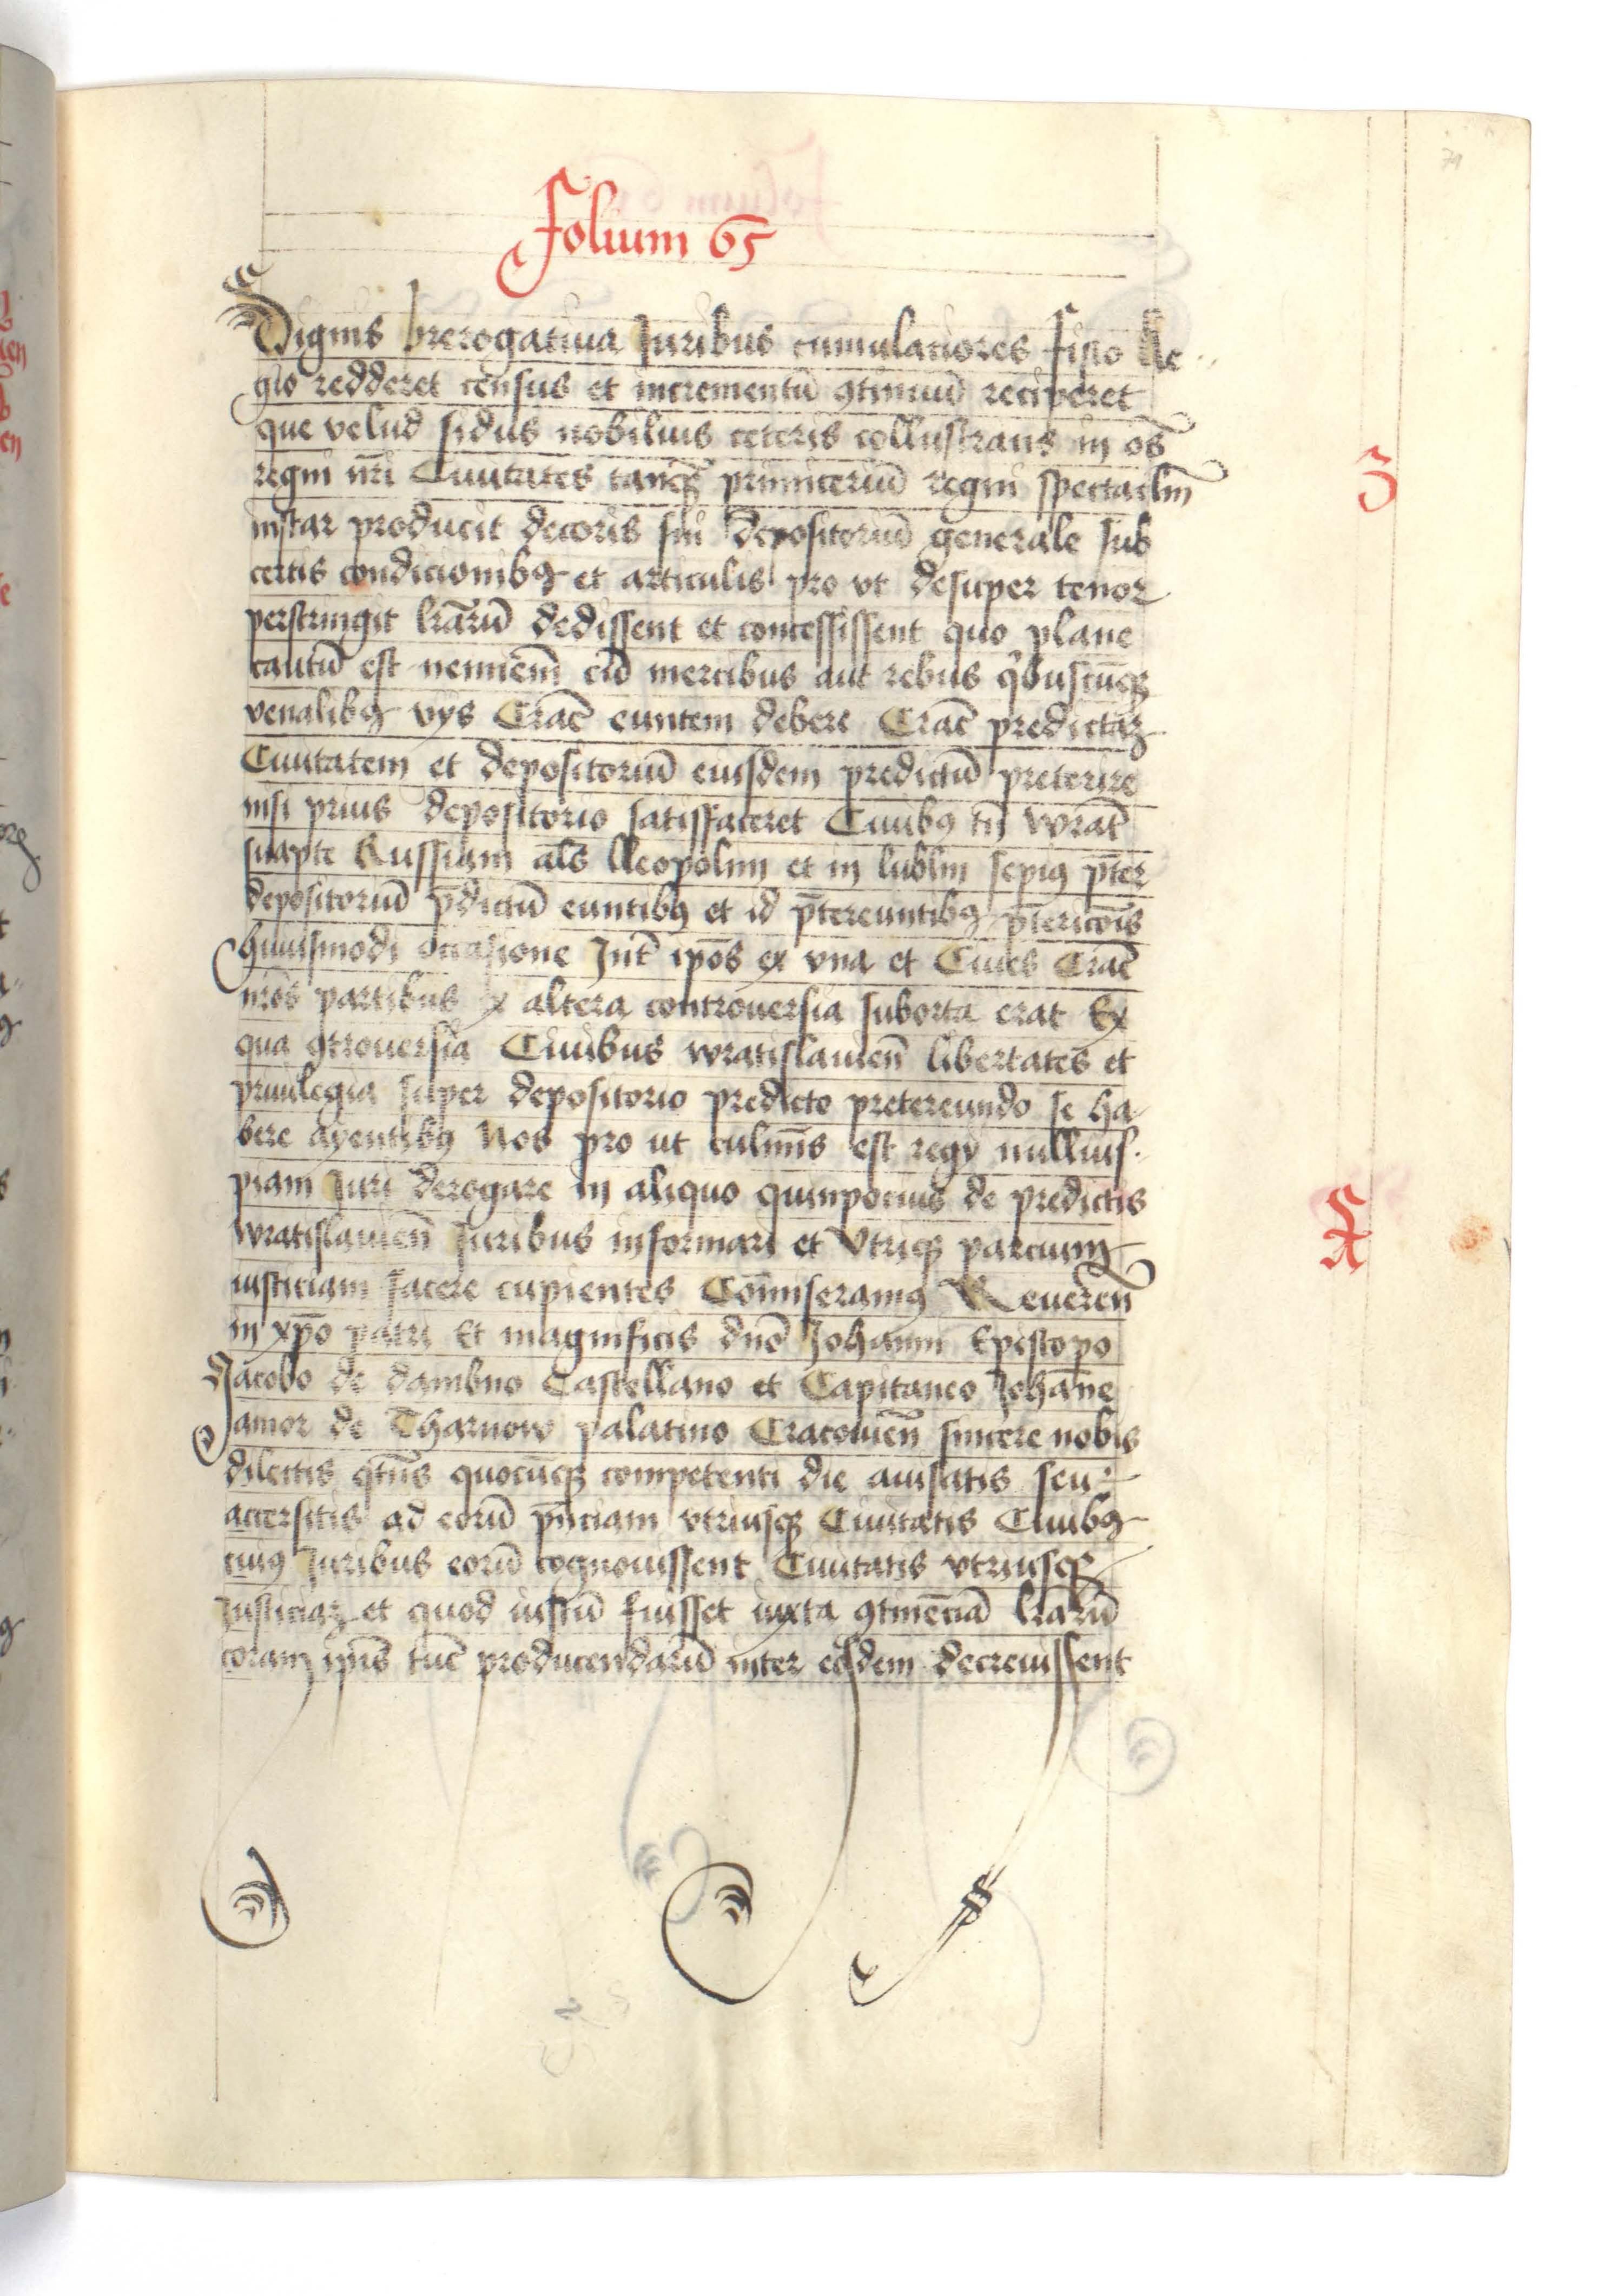 Folium 65
Dignis prerogatiua Juribus cumulatiores fisco Re
gio redderet census et incrementū ꝯtinuū reciperet
que velud sidus nobilius ceteris collustrans in oēs
regni nrī Ciuitates tanq̄ primiceriū regni
instar producit decoris sui depositoriū generale sub
certis condicionibꝯ et articulis pro vt desuper tenor
perstringit lrārū dedissent et concessissent quo plane
cautū est neminem cū mercibus aut rebus qͥbuscūqꝫ
venalibꝯ vijs Crac̄ euntem debere Crac̄ predictaꝫ
Ciuitatem et depositoriū eiusdem predictū preterire
nisi prius depositorio satisfaceret Ciuibꝯ tn̄ wratꝭ
suapte Russiam als̄ lleopolim et in lublin sepiꝯ p̄ter
depositoriū p̄dictū euntibꝯ et id p̄tereuntibꝯ p̄tericōis
huiusmodi occasione Int̄ ipōs ex vna et Ciues Cracͤ
nrōs partibus ex altera controuersia suborta erat Ex
qua ꝯtrouersia Ciuibus wratislauien̄ libertates et
priuilegia super depositorio predicto pretereundo se ha
bere ayentibꝯ Nos pro ut culmīs est regij nullius
piam Juri derogare in aliquo quinpocius de predictis
wratislauien̄ Juribus informari et Vtriqꝫ parcium
iusticiam facere cupientes Com̄iseramꝯ Reueren̄
in xpō patri Et magnificis dn̄o Johanni Episcopo
Jacobo de dambno Castellano et Capitaneo Johāne
Jamor de Tharnow palatino Cracouien̄ sincere nobis
dilectis qtn̄s quocūqꝫ competenti die auisatis seu
accersitis ad eorū pn̄ciam vtriusqꝫ Ciuitatis Ciuibꝯ
cuiꝯ Juribus eorū cognouissent Ciuitatis vtriusqꝫ
Justiciaꝫ et quod iustū fuisset iuxta ꝯtinēciā lrārū
coram ipīs tūc producendarū inter eosdem decreuissent